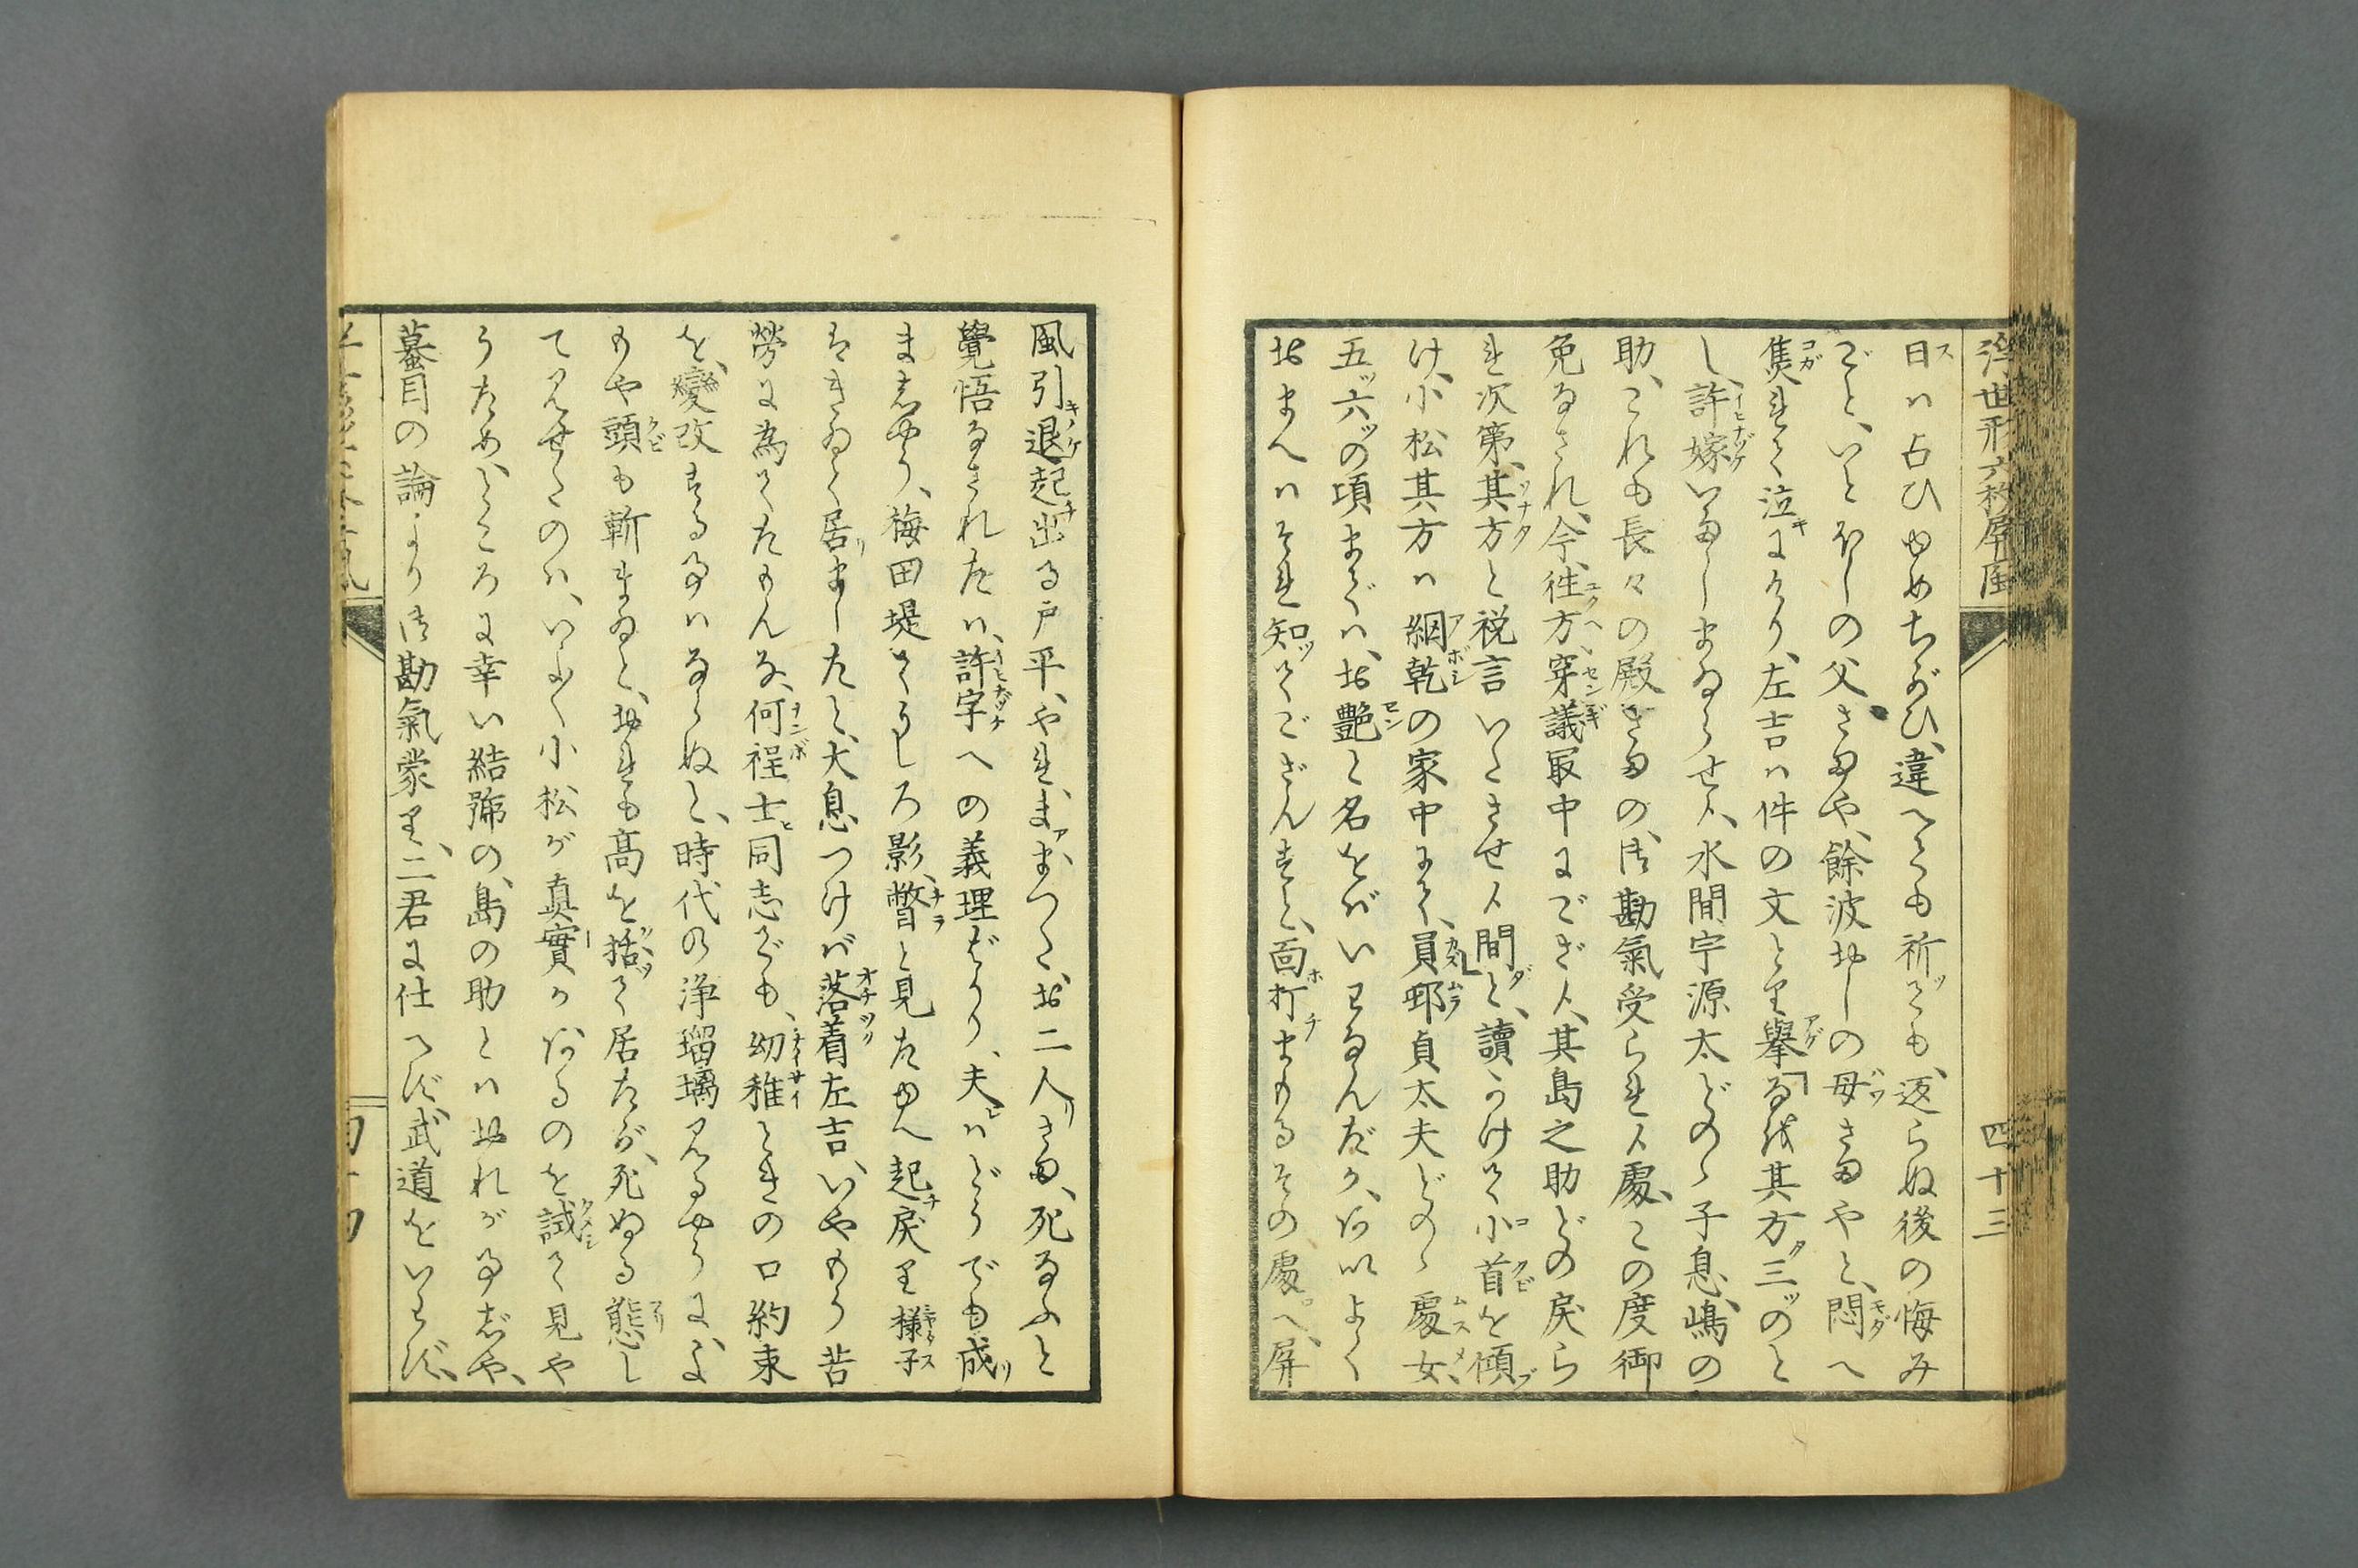 浮世形六枚屏風
四十三
日ハ占ひゆめちがひ、違へても祈ても、返らぬ後の悔み
ごと、いとほしの父さまや、餘波おしの母さまやと、悶へ
焦れて泣にけり、左吉ハ件の文とり擧、なに〳〵其方三ッのと
し、許嫁いたしまゐらせ候、水間宇源太どのゝ子息、嶋の
助、これも長々の殿さまの、御勘氣受られ候處、この度御
免なされ、今、往方穿議最中にござ候、其島之助どの戻ら
れ次第、其方と祝言いたさせ候間と、讀かけて小首を傾
け、小松其方ハ網乾の家中にて、員邨貞太夫どのゝ處女、
五ッ六ッの頃まで、お艶と名をばいわなんだか、
おまんハそれ知つてござんすと、面打まもるその處へ、屏
風引退起出る戸平、やれ、まアまつた、お二人さま、死なふと
覺悟なされたハ、許字への義理ばかり、夫ハどうでも成
ましやう、梅田堤でうしろ影、瞥と見たゆへ起戻り様子
はきゐて居ましたと、大息つけバ落着左吉、いやもう苦
勞に為てたもんな、何程士同志でも、幼稚ときの口約束
を、變改するのハならぬと、時代の浄瑠璃見るやうに、よ
もや頭も斬まゐと、おれも高を括つて居たが、死ぬる態し
て見せたのハ、いよ〳〵小松が真實かあるのを試て見や
うため、ところに幸い結號の、島の助とハおれが事じや、
蟇目の論より御勘氣蒙り、二君に仕へず武道をいらず、